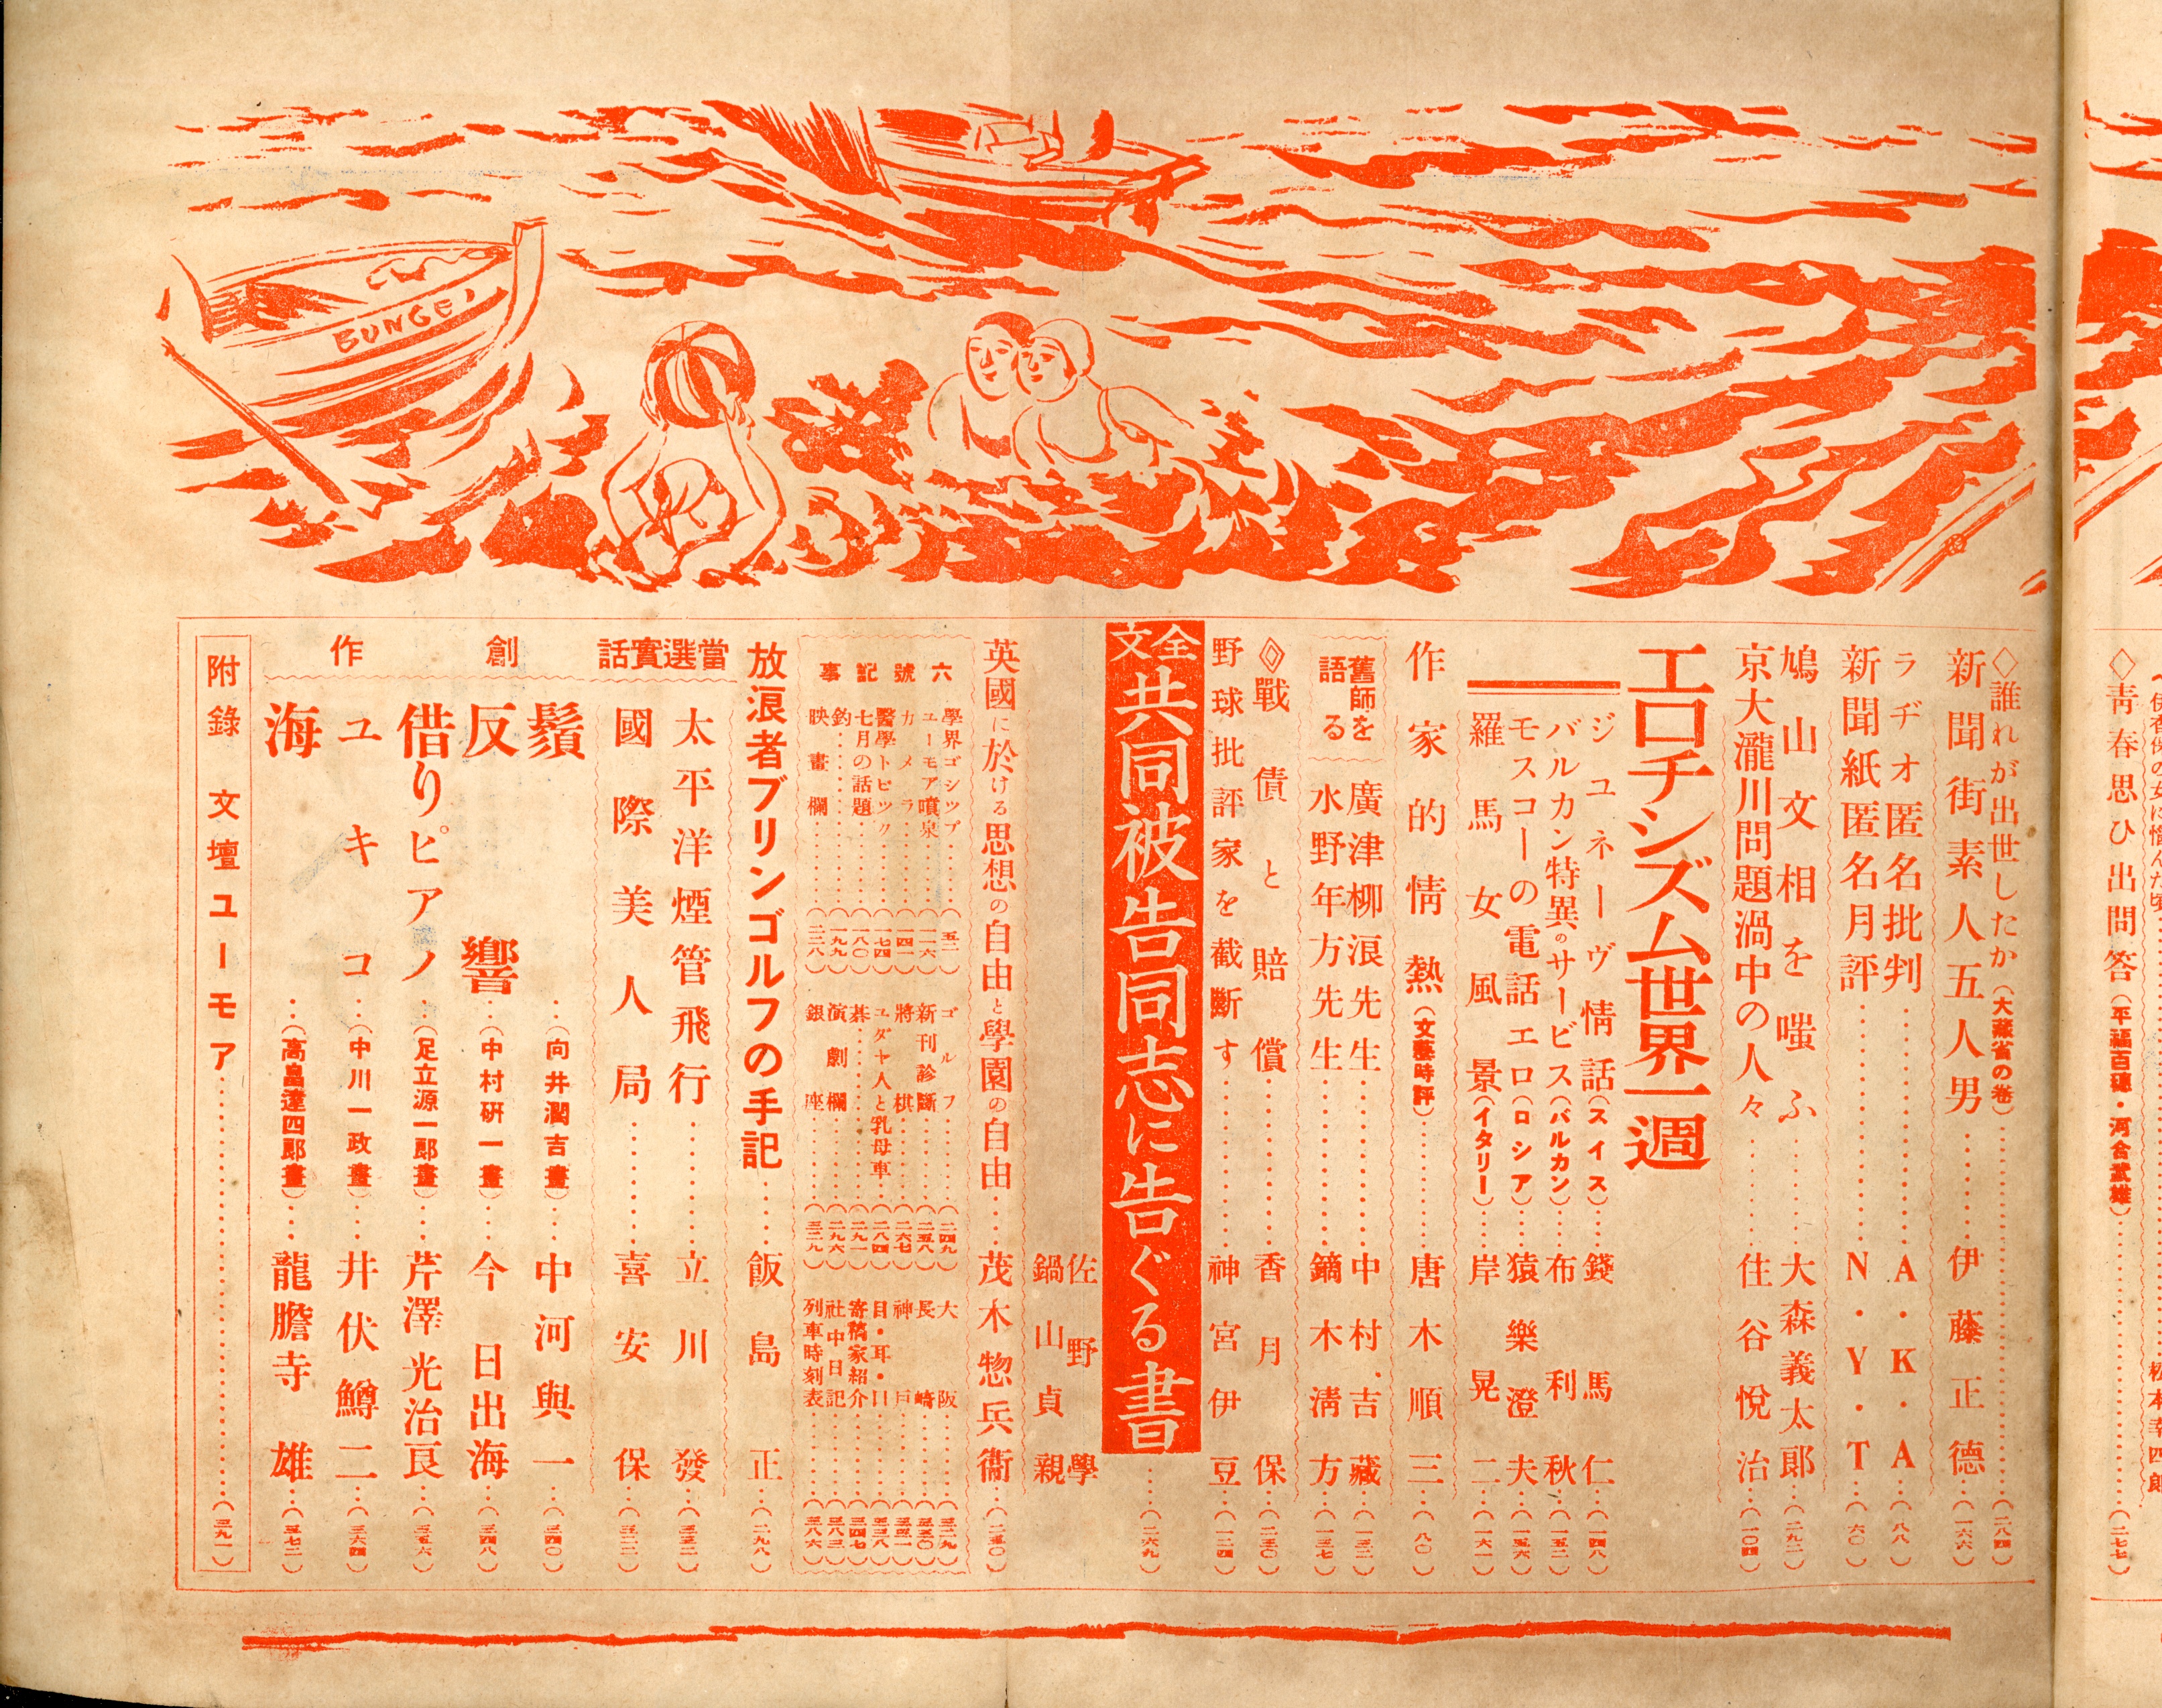 BUNGEI
◇青春思ひ出問答(平福百穗・河合武雄)
◇誰れが出世したか(大藏省の卷)……(二八四)
新聞街素人五人男……伊藤正德…(一六六)
ラヂオ匿名批判……A・K・A…(八八)
新聞紙匿名月評……N・Y・T…(六〇)
鳩山文相を嗤ふ……大森義太郎…(二九二)
京大瀧川問題渦中の人々……住谷悅治…(一〇四)
エロチシズム世界一週
ジユネーヴ情話(スイス)…錢馬仁…(一四八)
バルカン特異のサービス(バルカン)…布利秋…(一五二)
モスコーの電話エロ(ロシア)…猿樂澄夫…(一五六)
羅馬女風景(イタリー)…岸晃二…(一六一)
作家的情熱(文藝時評)……唐木順三…(八〇)
舊師を語る
廣津柳浪先生……中村吉藏…(一三二)
水野年方先生……鏑木淸方…(一三七)
◇戰債と賠償……香月保…(二三〇)
野球批評家を截斷す……神宮伊豆…(一二四)
全文
共同被告同志に告ぐる書……(二六九)
佐野學
鍋山貞親
英國に於ける思想の自由と學園の自由……茂木惣兵衞…(二五〇)
六號記事
學界ゴシツプ……(五二)
ユーモア噴泉……(一一六)
カメラ……(一四一)
醫學トピツク……(一七四)
七月の話題……(一八〇)
釣……(一九九)
映畫欄……(二二八)
ゴルフ……(二四九)
新刊診斷……(二五八)
將棋……(二六七)
ユダヤ人と乳母車……(二八四)
碁……(二九一)
演劇欄……(二九六)
銀座……(三一九)
大阪……(三二九)
長崎……(三三〇)
神戶……(三三一)
目・耳・口……(三三八)
寄稿家紹介……(三四七)
社中日記……(三八三)
列車時刻表……(三八六)
放浪者ブリンゴルフの手記……飯島正…(二九八)
當選實話
太平洋煙管飛行……立川發…(三三二)
國際美人局……喜安保…(三二二)
創作
鬚…(向井潤吉畫)…中河與一…(三四〇)
反響…(中村硏一畫)…今日出海…(三四八)
借りピアノ…(足立源一郞畫)…芹澤光治良…(三五六)
ユキコ…(中川一政畫)…井伏鱒二…(三六四)
海…(高畠達四郞畫)…龍膽寺雄…(三七二)
附錄 文壇ユーモア……(三九一)